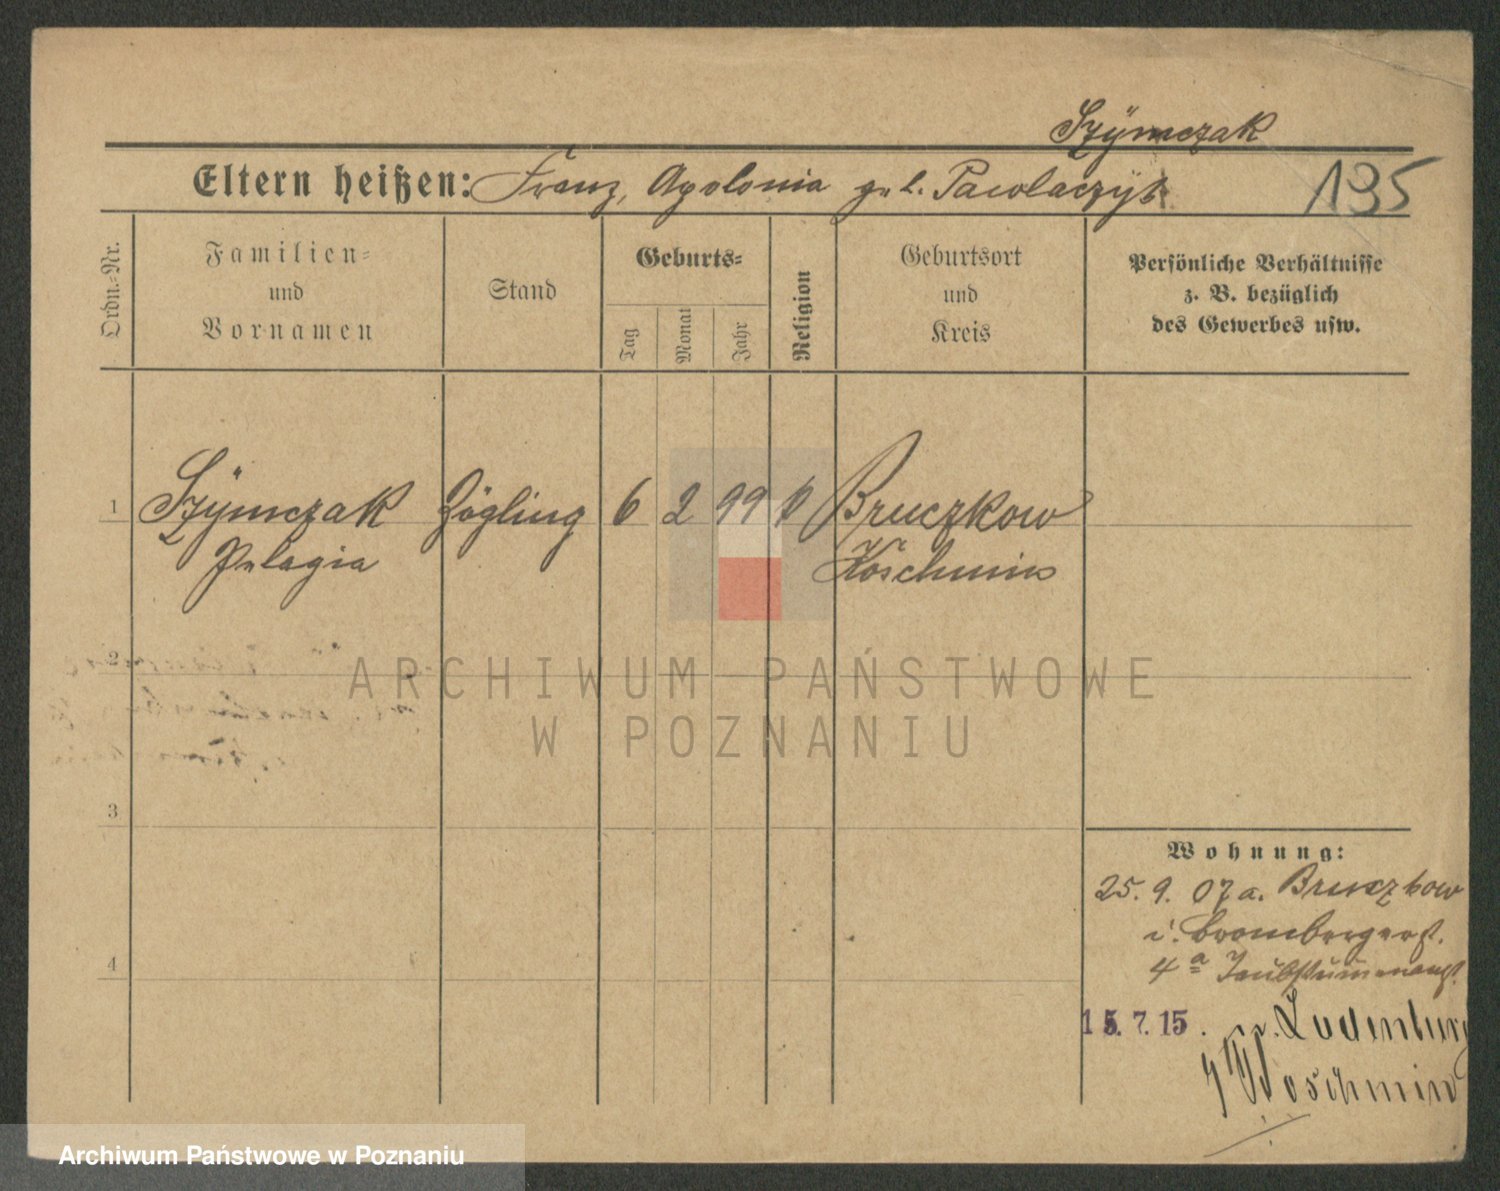 Szÿmczak
Eltern heißen: Franz, Apolonia geb. Pawlaczyk
195
Ordn.-Nr.
Familien-
und
Vornamen
Stand
Geburts-
Tag
Monat
Jahr
Religion
Geburtsort
und
Kreis
Persönliche Verhältnisse
z. B. bezüglich
des Gewerbes usw.
1 Szÿmczak Zögling 6 2 99 k Bruczkow
Pelagia Koschmin
2
ARCHIWUM PAŃSTWOWE
W POZNANIU
3
Wohnung:
25. 9. 07 a. Bruczkow
i. Brombergerst.
4 4a Taubstummenanst.
15.7.15.
Koschmin
Archiwum Państwowe w Poznaniu